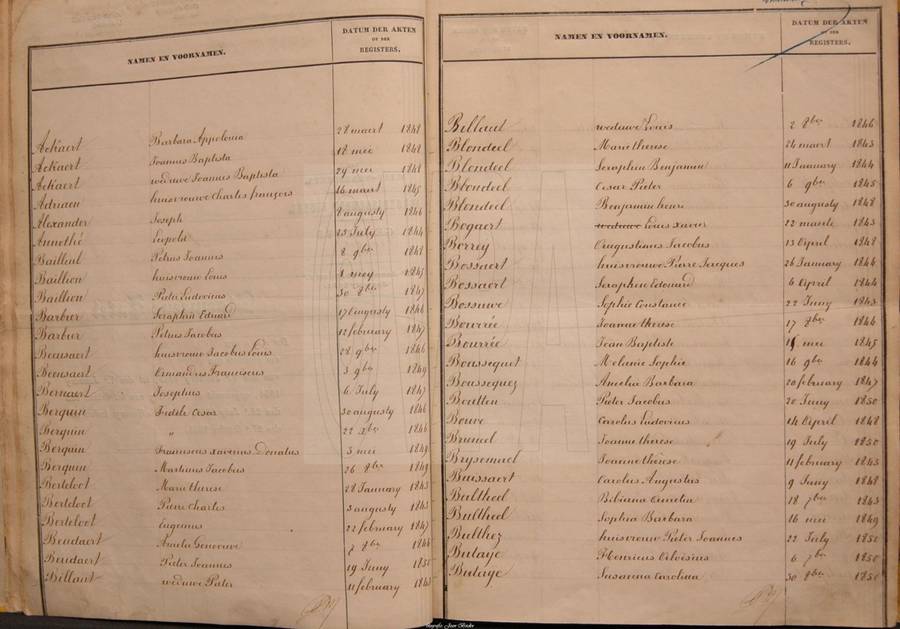 NAMEN EN VOORNAMEN. DATUM DER AKTEN
OF DER
REGISTERS.
Ackaert Barbara Appolonia 28 maert 1848
Ackaert Joannes Baptista 18 mei 1848
Ackaert weduwe Joannes Baptista 29 mei 1848
Adriaen huisvrouwe Charles françois 16 maert 1845
Alexander Joseph 8 augusty 1846
Annothé Leopold 23 July 1844
Bailleul Petrus Joannes 8 9ber 1848
Baillion huisvrouw Louis 8 mey 1845
Baillion Pieter Ludovicus 30 8ber 1847
Barbier Seraphin Eduard 17 augusty 1846
Barbier Petrus Jacobus 12 february 1847
Beausaert huisvrouw Jacobus Louis 28 9ber 1846
Beausaert Franciscus 3 9ber 1849
Bernaert Josephus 6 July 1847
Berquin Fidele Cesar 30 augusty 1846
Berquin " 22 xber 1846
Berquin Franciscus xaverius Donatus 3 mei 1849
Berquin Martinus Jacobus 26 8ber 1849
Berteloot Marie therese 28 January 1843
Berteloot Pierre Charles 3 augusty 1843
Berteloot Eugenius 22 february 1847
Beudaert Amelia Genoveve 7 8ber 1848
Beudaert Pieter Joannes 19 Juny 1850
Billaut weduwe Pieter 11 february 1843
NAMEN EN VOORNAMEN. DATUM DER AKTEN
OF DER
REGISTERS.
Billaut weduwe Louis 2 8ber 1846
Blondeel Marie therese 24 maert 1843
Blondeel Seraphin Benjamin 11 January 1844
Blondeel Cesar Pieter 6 9ber 1845
Blondeel Benjamin henri 30 augusty 1848
Bogaert weduwe Louis xavier 22 1843
Borrey Augustinus Jacobus 13 April 1848
Bossaert huisvrouwe Pierre Jacques 26 January 1844
Bossaert Seraphin Edouard 6 April 1844
Bossuwe Sophie Constance 22 Juny 1843
Bourrée Joanne therese 17 8ber 1846
Bourrée Jean Baptiste 15 mei 1845
Boussequet Melanie Sophie 16 9ber 1844
Boussequey Amelia Barbara 20 february 1847
Boutten Pieter Jacobus 20 Juny 1850
Bouve Carolus Ludovicus 14 April 1848
Bruneel Joanne therese 19 July 1850
Brysemael Joanne thérèse 11 february 1843
Buissaert Carolus Augustus 9 Juny 1848
Bultheel Bibiana Amelia 18 7ber 1843
Bultheel Sophia Barbara 16 mei 1849
Bulthez huisvrouw Pieter Joannes 22 July 1850
Butaye Henricus Aloisius 6 7ber 1850
Butaye Susanna Carolina 30 8ber 1850